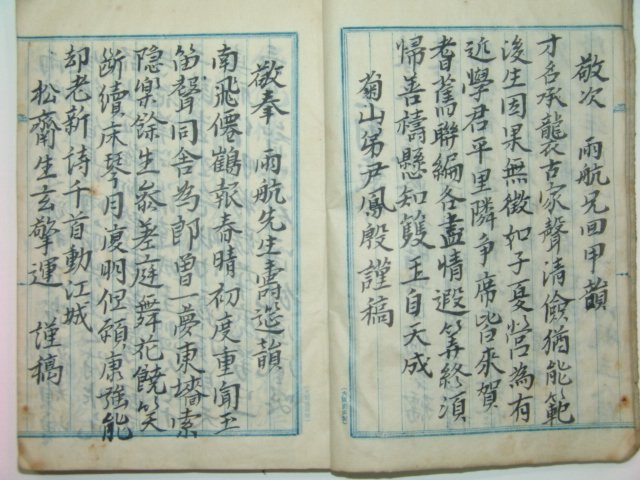 敬次　雨航兄回甲韻
才名承襲古家聲清儉猶能範
後生因果無徵如子夏營為有
近學君平里隣爭席皆來賀
耆舊聯編各盡情遐筭終須
歸善禱懸知雙玉自天成
菊山弟尹鳳殷謹稿
敬奉　雨航先生壽筵韻
南飛僊鶴報春晴初度重聞玉
笛聲同舍為郎曾一夢東墻索
隱樂餘生參差庭舞花饒笑
斷續床琴月復明但願康強能
却老新詩千首動江城
松齋生玄擎運　謹稿